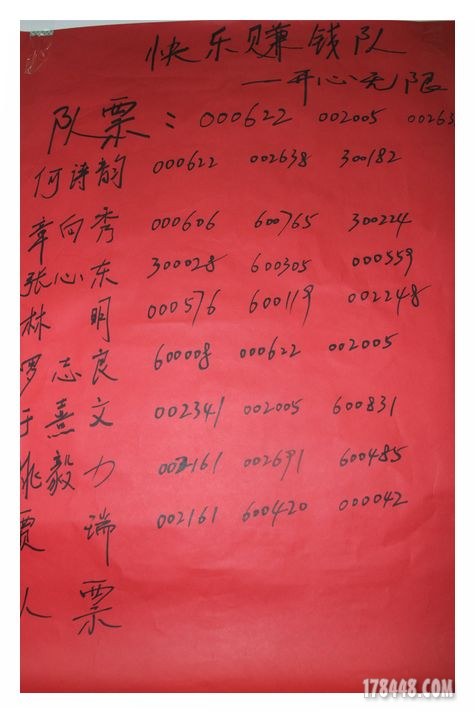 快乐赚钱队
—开心无限
队票：000622 002005 00263
何诗韵 000622 002638 300182
章向秀 000606 600765 300224
张心东 300028 600305 000559
林明 000576 600119 002248
罗志良 60008 000622 002005
于熹文 002341 002005 600831
兆毅力 002161 002691 600485
贾瑞 002161 600420 000042
人票
178448.COM